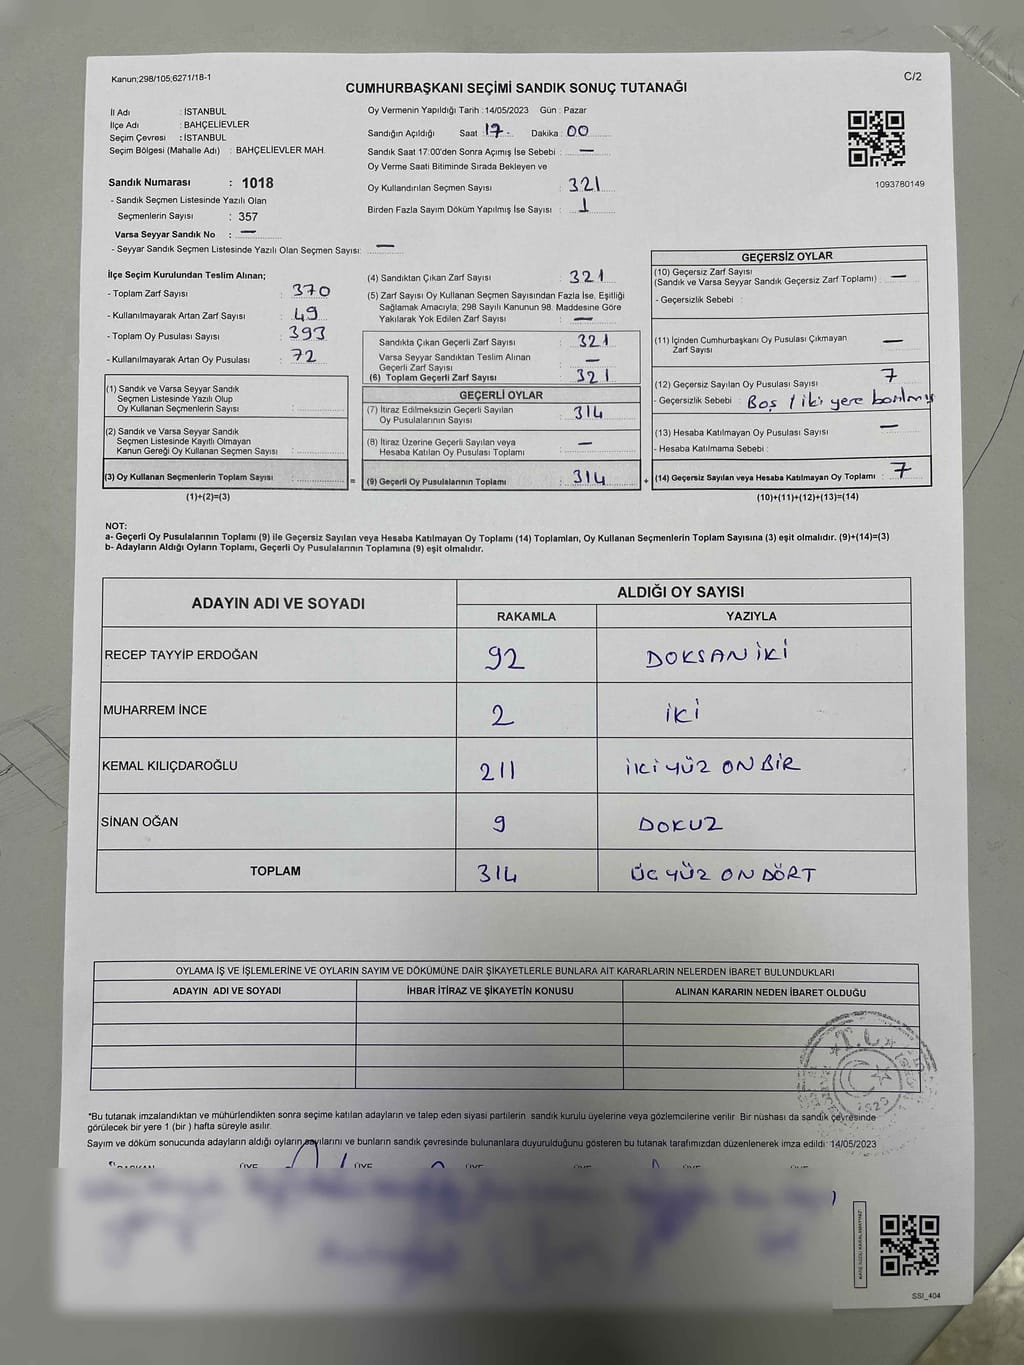 Kanun;298/105;6271/18-1
C/2
CUMHURBAŞKANI SEÇİMİ SANDIK SONUÇ TUTANAĞI
İl Adı : İSTANBUL
İlçe Adı : BAHÇELİEVLER
Seçim Çevresi : İSTANBUL
Seçim Bölgesi (Mahalle Adı) : BAHÇELİEVLER MAH.
Oy Vermenin Yapıldığı Tarih : 14/05/2023 Gün : Pazar
Sandığın Açıldığı Saat 17 Dakika : 00
Sandık Saat 17:00'den Sonra Açımış İse Sebebi : —
Oy Verme Saati Bitiminde Sırada Bekleyen ve
Oy Kullandırılan Seçmen Sayısı : 321
Birden Fazla Sayım Döküm Yapılmış İse Sayısı : 1
1093780149
Sandık Numarası : 1018
- Sandık Seçmen Listesinde Yazılı Olan
Seçmenlerin Sayısı : 357
Varsa Seyyar Sandık No : —
- Seyyar Sandık Seçmen Listesinde Yazılı Olan Seçmen Sayısı: —
İlçe Seçim Kurulundan Teslim Alınan;
- Toplam Zarf Sayısı : 370
- Kullanılmayarak Artan Zarf Sayısı : 49
- Toplam Oy Pusulası Sayısı : 393
- Kullanılmayarak Artan Oy Pusulası : 72
(1) Sandık ve Varsa Seyyar Sandık
Seçmen Listesinde Yazılı Olup
Oy Kullanan Seçmenlerin Sayısı :
(2) Sandık ve Varsa Seyyar Sandık
Seçmen Listesinde Kayıtlı Olmayan
Kanun Gereği Oy Kullanan Seçmen Sayısı :
(3) Oy Kullanan Seçmenlerin Toplam Sayısı :
(1)+(2)=(3)
(4) Sandıktan Çıkan Zarf Sayısı : 321
(5) Zarf Sayısı Oy Kullanan Seçmen Sayısından Fazla İse, Eşitliği
Sağlamak Amacıyla; 298 Sayılı Kanunun 98. Maddesine Göre
Yakılarak Yok Edilen Zarf Sayısı : —
Sandıkta Çıkan Geçerli Zarf Sayısı : 321
Varsa Seyyar Sandıktan Teslim Alınan
Geçerli Zarf Sayısı : —
(6) Toplam Geçerli Zarf Sayısı : 321
GEÇERLİ OYLAR
(7) İtiraz Edilmeksizin Geçerli Sayılan
Oy Pusulalarının Sayısı : 314
(8) İtiraz Üzerine Geçerli Sayılan veya
Hesaba Katılan Oy Pusulası Toplamı : —
= (9) Geçerli Oy Pusulalarının Toplamı : 314
GEÇERSİZ OYLAR
(10) Geçersiz Zarf Sayısı
(Sandık ve Varsa Seyyar Sandık Geçersiz Zarf Toplamı) : —
- Geçersizlik Sebebi :
(11) İçinden Cumhurbaşkanı Oy Pusulası Çıkmayan
Zarf Sayısı : —
(12) Geçersiz Sayılan Oy Pusulası Sayısı : 7
- Geçersizlik Sebebi : Boş / iki yere basılmış
(13) Hesaba Katılmayan Oy Pusulası Sayısı : —
- Hesaba Katılmama Sebebi :
+ (14) Geçersiz Sayılan veya Hesaba Katılmayan Oy Toplamı : 7
(10)+(11)+(12)+(13)=(14)
NOT:
a- Geçerli Oy Pusulalarının Toplamı (9) ile Geçersiz Sayılan veya Hesaba Katılmayan Oy Toplamı (14) Toplamları, Oy Kullanan Seçmenlerin Toplam Sayısına (3) eşit olmalıdır. (9)+(14)=(3)
b- Adayların Aldığı Oyların Toplamı, Geçerli Oy Pusulalarının Toplamına (9) eşit olmalıdır.
ADAYIN ADI VE SOYADI ALDIĞI OY SAYISI
RAKAMLA YAZIYLA
RECEP TAYYİP ERDOĞAN 92 DOKSAN İKİ
MUHARREM İNCE 2 İKİ
KEMAL KILIÇDAROĞLU 211 İKİ YÜZ ON BİR
SİNAN OĞAN 9 DOKUZ
TOPLAM 314 ÜÇ YÜZ ON DÖRT
OYLAMA İŞ VE İŞLEMLERİNE VE OYLARIN SAYIM VE DÖKÜMÜNE DAİR ŞİKAYETLERLE BUNLARA AİT KARARLARIN NELERDEN İBARET BULUNDUKLARI
ADAYIN ADI VE SOYADI İHBAR İTİRAZ VE ŞİKAYETİN KONUSU ALINAN KARARIN NEDEN İBARET OLDUĞU
T.C.
*Bu tutanak imzalandıktan ve mühürlendikten sonra seçime katılan adayların ve talep eden siyasi partilerin sandık kurulu üyelerine veya gözlemcilerine verilir. Bir nüshası da sandık çevresinde
görülecek bir yere 1 (bir ) hafta süreyle asılır.
Sayım ve döküm sonucunda adayların aldığı oyların sayılarını ve bunların sandık çevresinde bulunanlara duyurulduğunu gösteren bu tutanak tarafımızdan düzenlenerek imza edildi. 14/05/2023
BAŞKAN ÜYE ÜYE ÜYE ÜYE ÜYE ÜYE
SSI_404